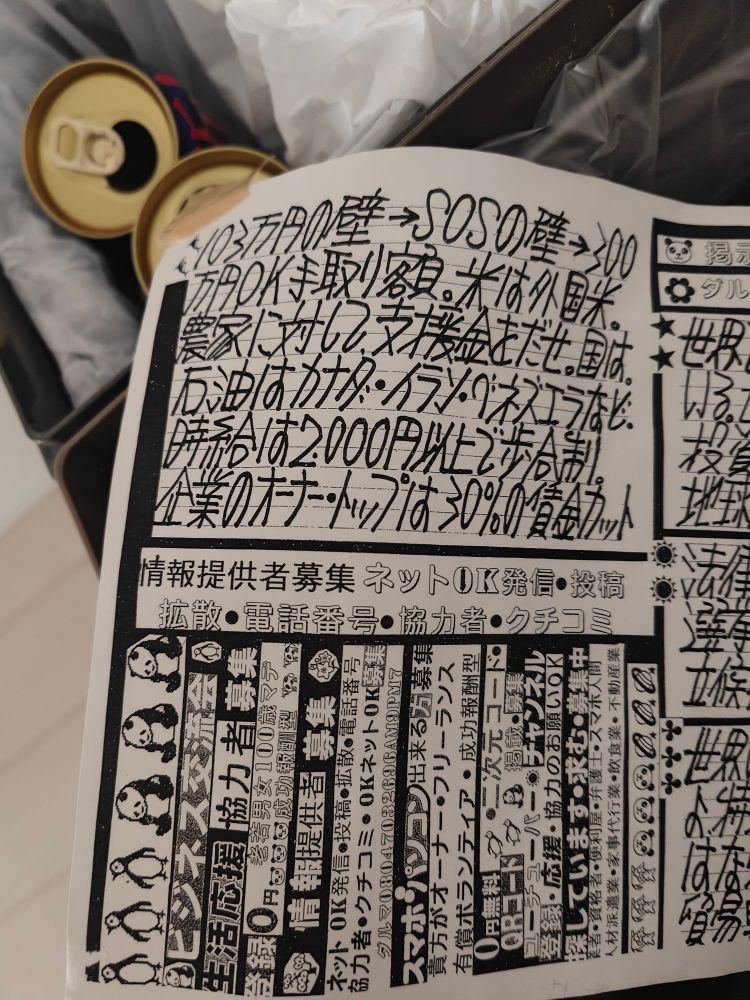 103万円の壁→SOSの壁→300
万円OK手取り額。米は外国米。
農家に対して支援金をだせ。国は。
石油はカナダ・イラン・ベネズエラなど。
時給は2000円以上で歩合制。
企業のオーナー・トップは30%の賃金カット
情報提供者募集 ネットOK発信・投稿
拡散・電話番号・協力者・クチコミ
ビジネス交流会
生活応援 協力者募集
登録0円 老若男女100歳マデ
成功報酬型
情報提供者 募集
ネットOK発信・投稿・拡散・電話番号
協力者・クチコミ・OKネットOK募集
グルマ08047032696AM9PM7
スマホ・パソコン出来る方募集
貴方がオーナー・フリーランス
有償ボランティア・成功報酬型
0円無料 二次元コード・
QRコード 掲載・募集
ユーチューバー チャンネル
登録・応援・協力のお願いOK
探しています・求む・募集中
業者・資格者・便利屋・弁護士・スマホ人間
人材派遣業・家事代行業・飲食業・不動産業
掲示
グル
世界
投資
地球
法律
世界